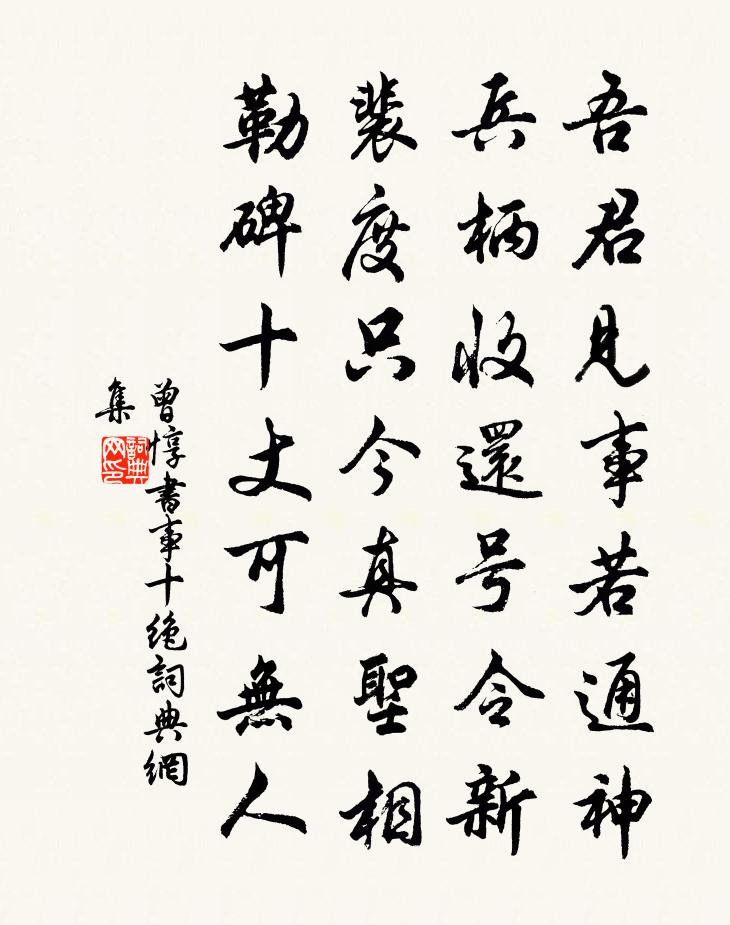 吾君見事若通神
兵柄收還号令新
裴度只今真聖相
勒碑十丈可無人
曾惇書事十絶詞典網
集
詞典網印